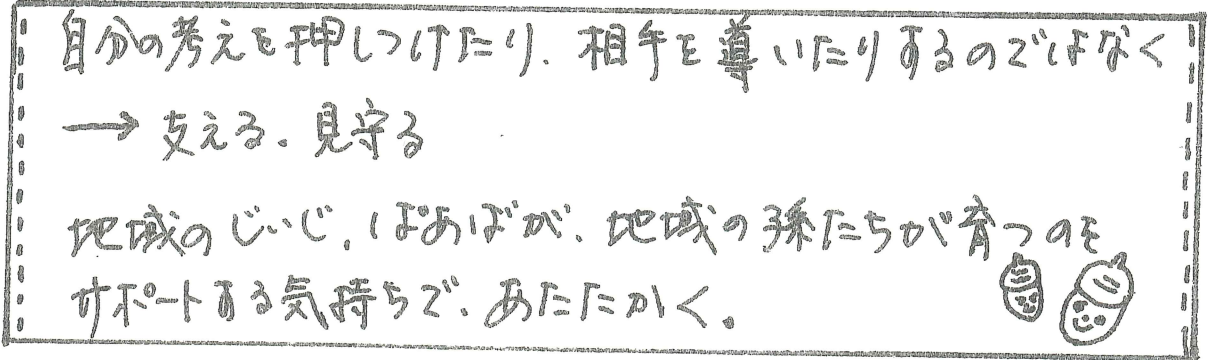 自分の考えを押しつけたり、相手を導いたりするのではなく
→ 支える。見守る
地域のじいじ、ばあばが、地域の孫たちが育つのを
サポートする気持ちで、あたたかく。